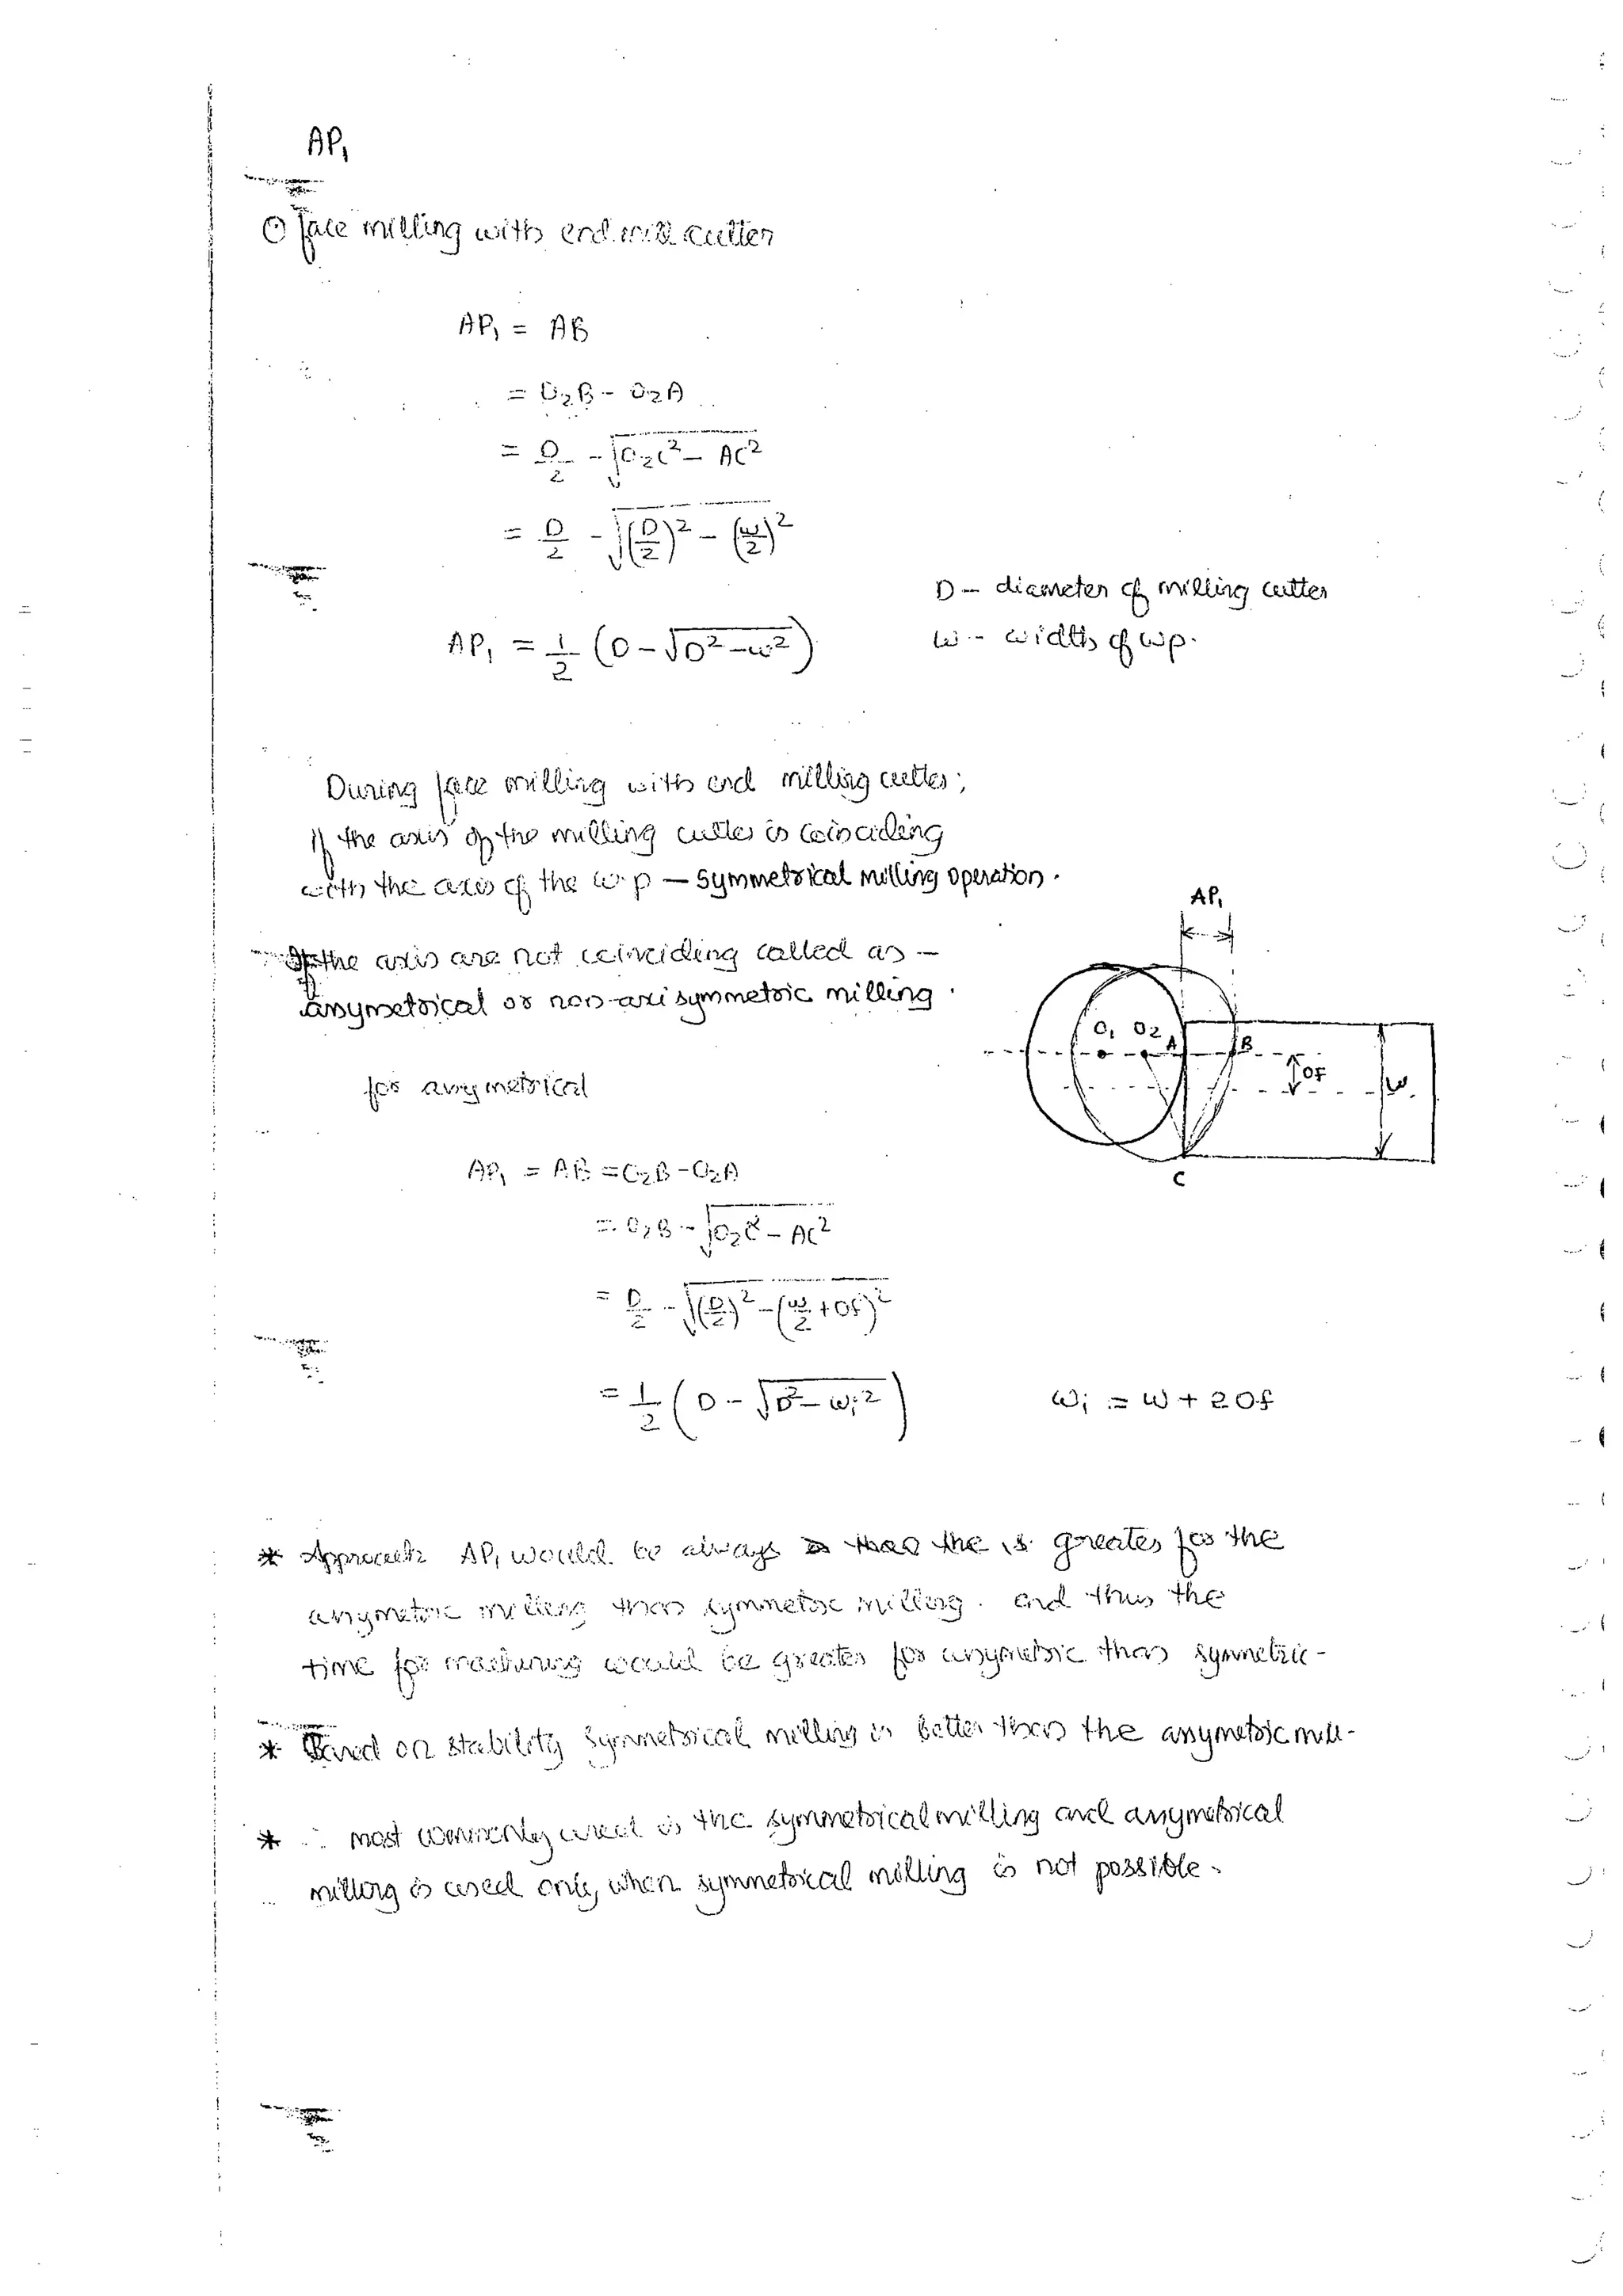 AP₁
① face milling with end mill cutter
AP₁ = AB
= O₂B - O₂A
= D/2 - √(O₂C² - AC²)
= D/2 - √((D/2)² - (w/2)²)
D - diameter of milling cutter
AP₁ = 1/2 (D - √(D² - w²))
w - width of wp.
During face milling with end milling cutter;
if the axis of the milling cutter is coinciding
with the axis of the w.p — symmetrical milling operation.
AP₁
If the axis are not coinciding called as —
assymetrical or non-axi symmetric milling.
O₁ O₂ A B
Of w
for assymetrical
C
AP₁ = AB = O₂B - O₂A
= O₂B - √(O₂C² - AC²)
= D/2 - √((D/2)² - (w/2 + Of)²)
= 1/2 (D - √(D² - wᵢ²))
wᵢ = w + 2 Of
* Approach AP₁ would be always than the is greater for the
assymetric milling than symmetric milling. and thus the
time for machining would be greater for assymetric than symmetric -
* Based on stability symmetrical milling is better than the assymetric mill-
* ∴ most commonly used is the symmetrical milling and assymetrical
milling is used only, when symmetrical milling is not possible.